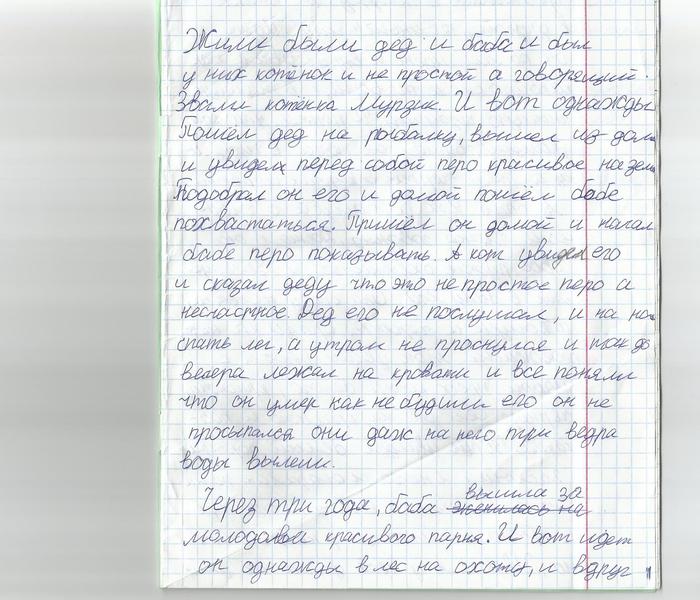 Жили были дед и баба и был
у них котёнок и не простой а говорящий.
Звали котёнка Мурзик. И вот однажды
Пошёл дед на рыбалку, вышел из дома
и увидел перед собой перо красивое на зем
Подобрал он его и домой пошёл бабе
похвастаться. Пришёл он домой и начал
бабе перо показывать. А кот увидел его
и сказал деду что это не простое перо а
несчастное. Дед его не послушал, и на
спать лег, а утром не проснулся и так до
вечера лежал на кровати и все поняли
что он умер как не будили его он не
просыпался они даж на него три ведра
воды вылели.
Через три года, баба женилась на вышла за
молодова красивого парня. И вот идет
он однажды в лес на охоту, и вдруг